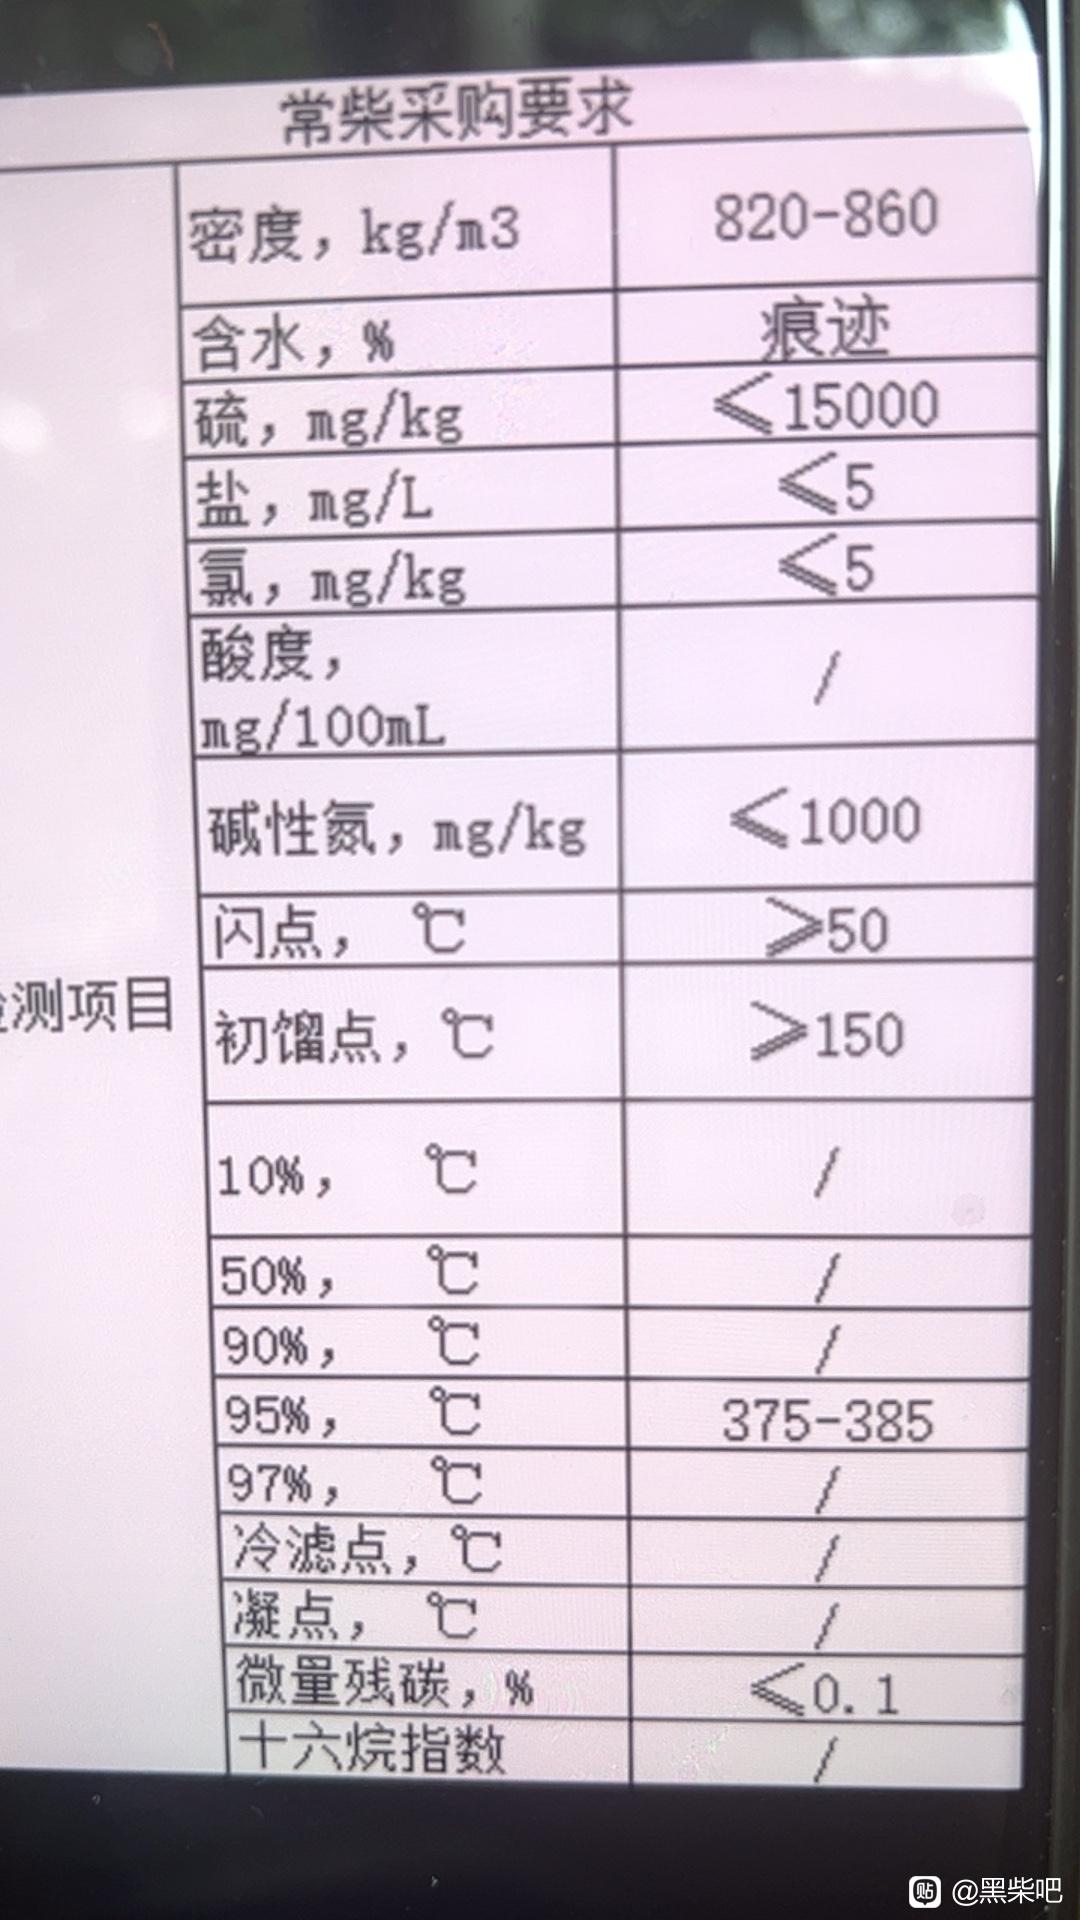 常柴采购要求
密度，kg/m3 820-860
含水，% 痕迹
硫，mg/kg ≤15000
盐，mg/L ≤5
氯，mg/kg ≤5
酸度，
mg/100mL /
碱性氮，mg/kg ≤1000
闪点，℃ ≥50
检测项目
初馏点，℃ ≥150
10%，℃ /
50%，℃ /
90%，℃ /
95%，℃ 375-385
97%，℃ /
冷滤点，℃ /
凝点，℃ /
微量残碳，% ≤0.1
十六烷指数 /
贴 @黑柴吧